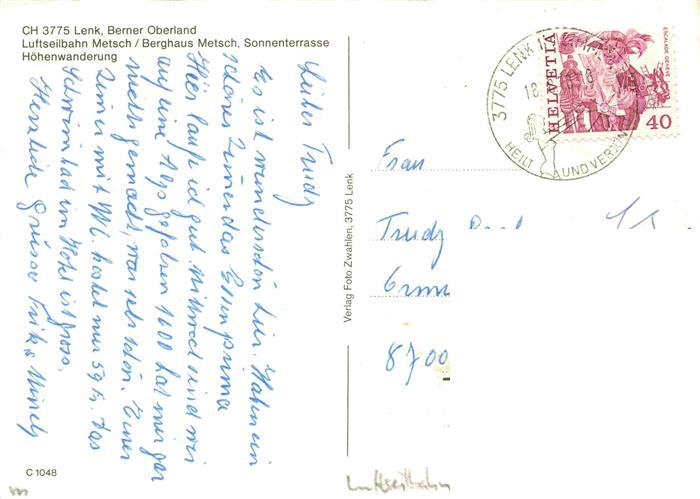 CH 3775 Lenk, Berner Oberland
Luftseilbahn Metsch / Berghaus Metsch, Sonnenterrasse
Höhenwanderung
Liebe Trudy
Es ist wunderschön hier. Haben ein
schönes Zimmer das Essen prima
Hier laufe ich gut. Mittwoch sind wir
auf eine Alp gefahren 1600 hat mir gar
nichts gemacht, war sehr schön. Einer
Zimmer mit kostet nur 59 Fr. Das
Schwimmbad im Hotel ist gross.
Herzliche Grüsse
C 1048
Verlag Foto Zwahlen, 3775 Lenk
3775 LENK
18.
HEILT UND VERJÜN
HELVETIA
ESCALADE GENÈVE
40
Frau
Trudy
8700
Luftseilbahn